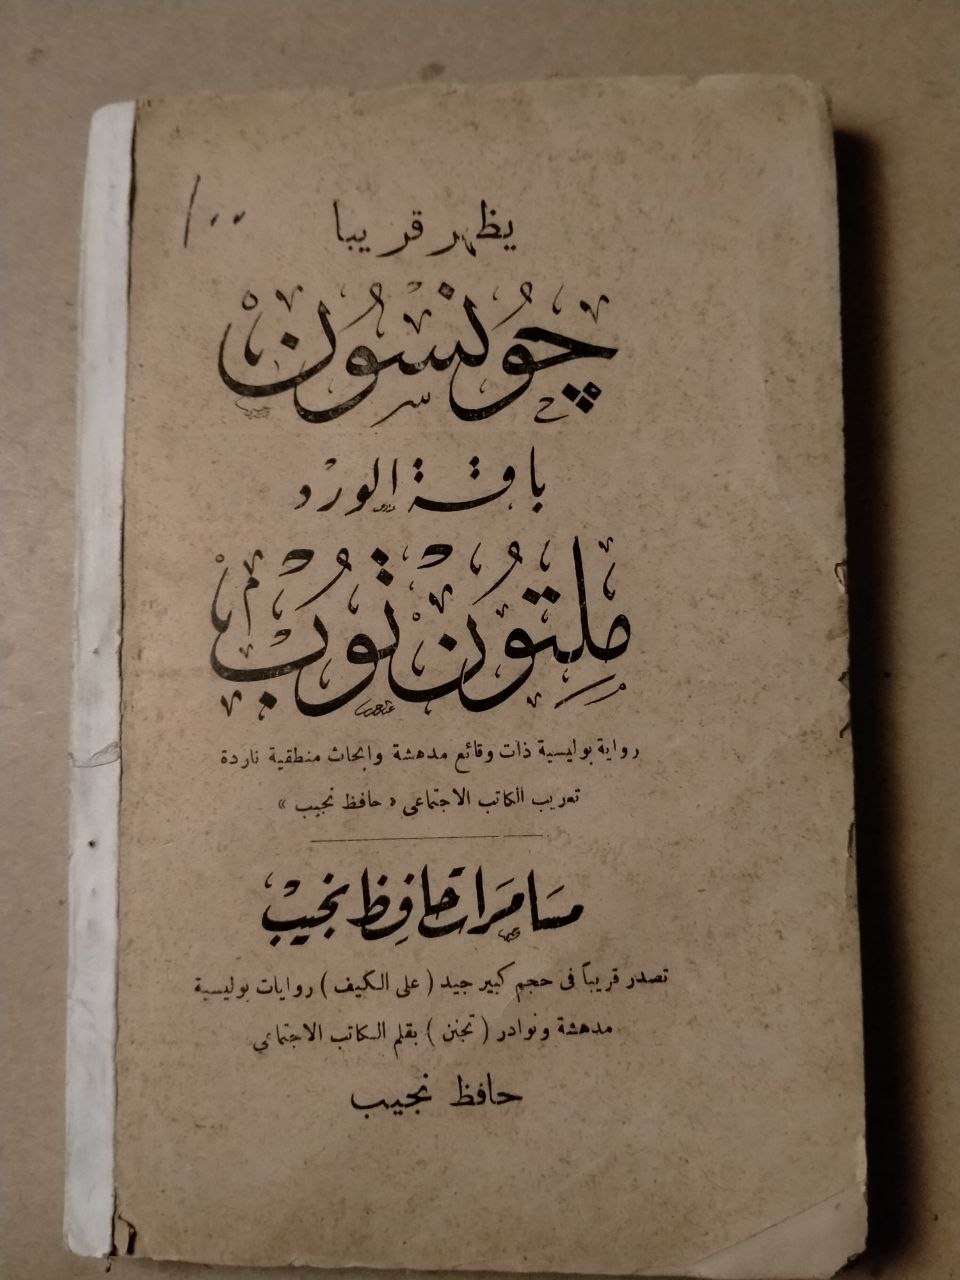 ١٠٠
يظهر قريبا
چُونسُون
باقة الورد
مِلتُون تُوب
رواية بوليسية ذات وقائع مدهشة وابحاث منطقية ناردة
تعريب الكاتب الاجتماعى «حافظ نجيب»
مسَامَرات حَافِظ نجيبْ
تصدر قريباً فى حجم كبير جيد ( على الكيف ) روايات بوليسية
مدهشة ونوادر ( تجنن ) بقلم الكاتب الاجتماعي
حافظ نجيب